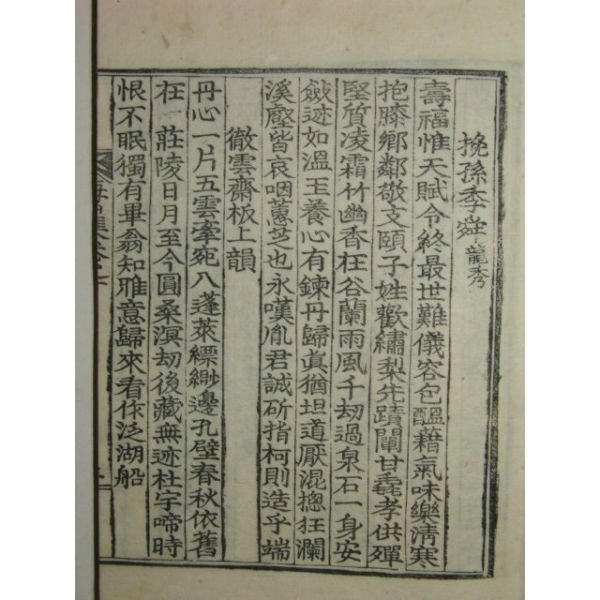 挽孫季舜龍秀
壽福惟天賦令終最世難儀容包醞藉氣味樂清寒
抱膝鄉鄰敬支頤子姓歡繡梨先蹟闡甘毳孝供殫
堅質凌霜竹幽香在谷蘭雨風千劫過泉石一身安
斂迹如溫玉養心有鍊丹歸眞猶坦道厭混摠狂瀾
溪壑皆哀咽蕙芝也永嘆胤君誠斫指柯則造乎端
徹雲齋板上韻
丹心一片五雲牽宛入蓬萊縹緲邊孔壁春秋依舊
在莊陵日月至今圓桑溟劫後藏無迹杜宇啼時
恨不眠獨有畢翁知雅意歸來看作泛湖船